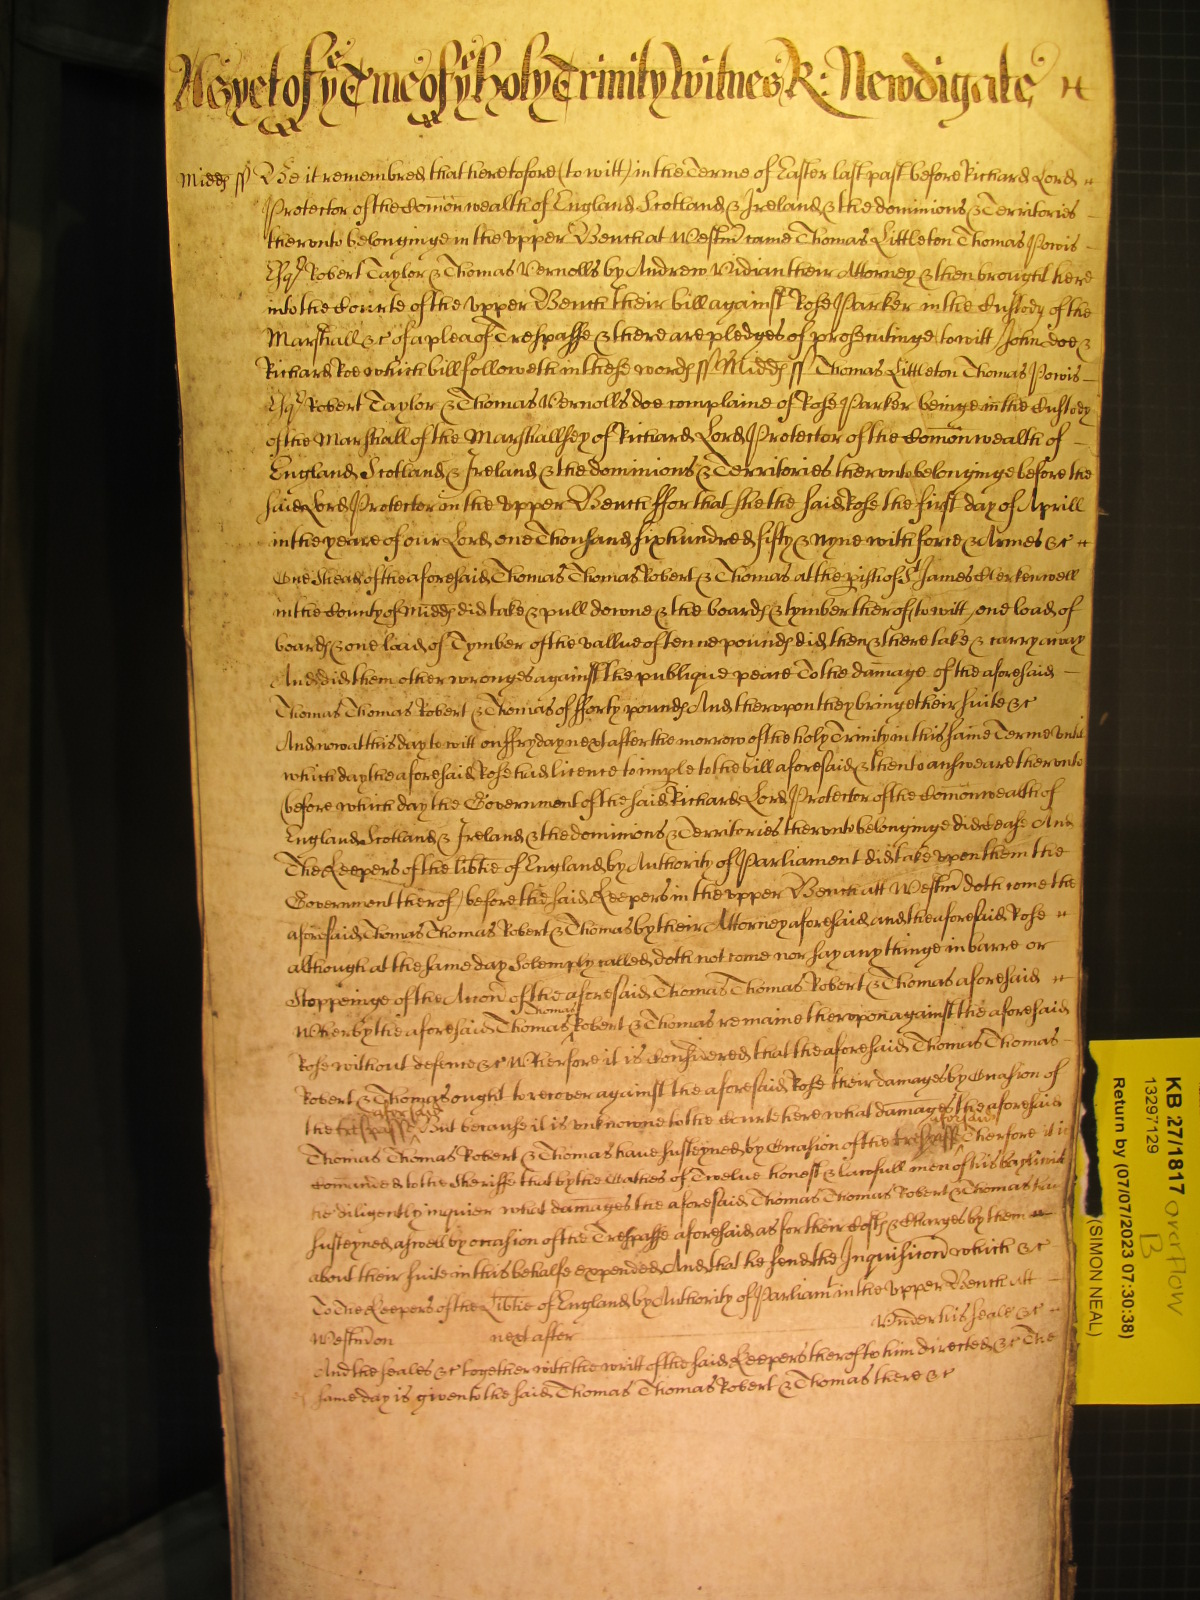 As yet of ye Terme of ye holy Trinity witnes R: Newdigate
Midds ss Be it remembred that heretofore (to witt) in the Terme of Easter last past before Richard Lord
Protector of the Comonwealth of England Scotland & Ireland & the dominions & Territories
therunto belonginge in the upper Bench at Westmr came Thomas Littleton Thomas Powis
Esqr Robert Taylor & Thomas Vernolls by Andrew Vidian their Attorney & then brought here
into the Courte of the upper Bench their bill against Rose Parker in the Custody of the
Marshall &c of a plea of Trespasse & there are pledges of prosecutinge to witt John doe &
Richard Roe which bill followeth in these words ss Midds ss Thomas Littleton Thomas Powis
Esqr Robert Taylor & Thomas Vernolls doe complaine of Rose Parker beinge in the Custody
of the Marshall of the Marshallsey of Richard Lord Protector of the Comonwealth of
England Scotland & Ireland & the dominions & Territories therunto belonginge before the
said Lord Protector in the upper Bench ffor that she the said Rose the first day of Aprill
in the yeare of our Lord one Thousand six hundred fifty & nyne with force & Armes &c
One Shead of the aforesaid Thomas Thomas Robert & Thomas at the pish of St James Clerkenwell
in the County of Midds did take & pull downe & the boards & tymber therof to witt, one load of
boards & one load of Tymber of the vallue of tenne pounds did then & there take & carry away
And did them other wronges against the publique peace To the damage of the aforesaid
Thomas Thomas Robert & Thomas of fforty pounds And therupon they bringe their suite &c
And now at this day to witt on ffryday next after the morrow of the holy Trinity in this same Terme untill
which day the aforesaid Rose had licence to imple to the bill aforesaid & then to answeare therunto
(before which day the Government of the said Richard Lord Protector of the Comonwealth of
England Scotland & Ireland & the dominions & Territories therunto belonginge did cease And
The Keepers of the libtie of England by Authority of Parliament did take upon them the
Government therof) before the said Keepers in the upper Bench att Westmr doth come the
aforesaid Thomas Thomas Robert & Thomas by their Attorney aforesaid and the aforesaid Rose
although at the same day Solemply called doth not come nor say any thinge in barre or
Stoppeinge of the Accon of the aforesaid Thomas Thomas Robert & Thomas aforesaid
Wherby the aforesaid Thomas Thomas Robert & Thomas remaine therupon against the aforesaid
Rose without defence &c Wherfore it is Considered that the aforesaid Thomas Thomas
Robert & Thomas ought to recover against the aforesaid Rose their damages by Occasion of
the trespasse aforesaid But because it is unknowne to the Courte here what damages the aforesaid
Thomas Thomas Robert & Thomas have susteyned by Occasion of the trespasse aforesaid Therfore it is
Comanded to the Sheriffe that by the Oathes of Twelve honest & lawfull men of his baylywick
he diligently inquier what damages the aforesaid Thomas Thomas Robert & Thomas have
susteyned aswell by occasion of the Trespasse aforesaid as for their Costs & Charges by them
about their suite in this behalfe expended And that he send the Inquisicon which &c
To the Keepers of the Libtie of England by Authority of Parliamt in the upper Bench att
Westmr on next after Under his seale &c
And the seales &c together with the writt of the said Keepers therof to him directed &c The
same day is given to the said Thomas Thomas Robert & Thomas there &c
KB 27/1817 overflow
B
13297129
Return by (07/07/2023 07:30:38)
(SIMON NEAL)